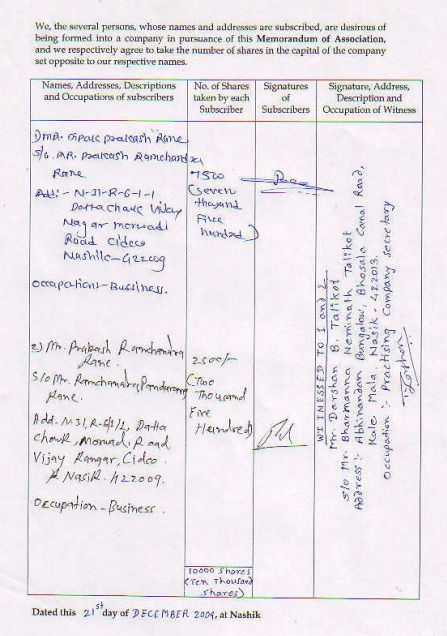 We, the several persons, whose names and addresses are subscribed, are desirous of
being formed into a company in pursuance of this Memorandum of Association,
and we respectively agree to take the number of shares in the capital of the company
set opposite to our respective names.
Names, Addresses, Descriptions
and Occupations of subscribers
No. of Shares
taken by each
Subscriber
Signatures
of
Subscribers
Signature, Address,
Description and
Occupation of Witness
1) MR. Dipak prakash Rane
S/o. MR. prakash Ramchandra
Rane
Add:- N-31-R-6-1-1
Datta chowk Vijay
Nagar morwadi
Road Cidco
Nashik-422009
Occupation:- Bussiness.
7500
(Seven
thousand
Five
hundred)
2) Mr. Prakash Ramchandra
Rane.
S/o Mr. Ramchandra Pandurang
Rane.
Add. N-31, R-6/1/1, Datta
chowk, Morwadi Road
Vijay Nangar, Cidco.
Nasik. 422009.
Occupation - Business.
2500/-
(Two
Thousand
Five
Hundred)
10000 shares
(Ten Thousand
shares)
WITNESSED TO 1 and 2
Mr. Darshan B. Talikot
S/o Mr. Bharmanna Neminath Talikot
Address :- Abhinandan Bungalow, Bhosala Canal Road,
Kale Mala, Nasik - 422013.
Occupation :- Practising Company Secretary
Dated this 21st day of DECEMBER 2009, at Nashik